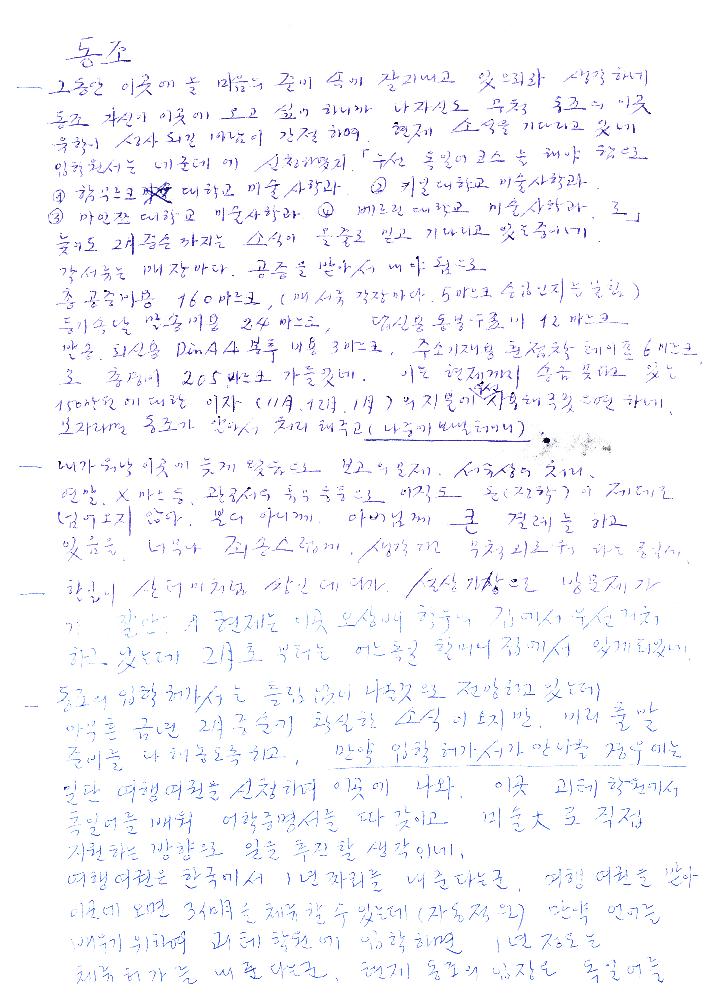 동조
— 그동안 이곳에 올 마음의 준비 속에 잘 지내고 있으리라 생각하네
동조 자신이 이곳에 오고 싶어 하니까 나 자신도 무척 동조의 이곳
유학이 성사되길 바람이 간절하여. 현재 소식을 기다리고 있네
입학원서는 네군데에 신청하였지.「우선 독일어 코스를 해야 함으로
① 함부르크 대학교 미술사학과. ② 키일 대학교 미술사학과.
③ 마인쯔 대학교 미술사학과 ④ 베르린 대학교 미술사학과. 로」
늦어도 2月 중순까지는 소식이 올줄로 믿고 기다리고 있는중이네.
각서류는 매장마다. 공증을 받아서 내야 됨으로
총 공증비용 160 마르크, (매서류 각장마다. 5마르크
등기속달 발송비용 24 마르크, 답신용 동봉 12 마르크
발송. 회신용 Din A4 봉투 비용 3마르크. 주소기재용 테이프 6마르크
로 총경비 205 마르크 가 들었네. 이는 현재까지 송금 못하고 있는
150만원에 대한 이자 (11月. 12月. 1月)의 지불에 해주었으면 하네.
모자라면 동조가 알아서 처리 해주고 (나중에 보낼테니).
— 내가 워낙 이곳에 늦게 왔음으로 보고의 문제. 서류상의 처리.
연말. X 마스 등. 관공서의 휴무 등등으로 아직도 돈(장학)이 제대로
넘어오지 않아. 본의 아니게. 아버님께 큰 결례를 하고
있음을. 너무나 죄송스럽게. 생각되고 무척 괴로워 하는 중일세.
— 할일이 산더미처럼 쌓인데다가. 설상가상으로 방문제가
현재는 이곳 오상배 학우의 집에서 우선 거처
하고 있는데 2月초 부터는 어느 독일 할머니 집에서 있게 되었네.
— 동조의 입학허가서는 틀림없이 나올것으로 전망하고 있는데
아무튼 금년 2月 중순경 확실한 소식이 오지만. 미리 출발
준비를 다 해놓도록 하고. 만약 입학허가서가 안나올 경우에는
일단 여행여권을 신청하여 이곳에 나와. 이곳 괴테 학원에서
독일어를 배워 어학증명서를 따 갖이고 미술大로 직접
지원하는 방향으로 일을 추진할 생각이네.
여행여권은 한국에서 1년짜리를 내준다는군. 여행여권을 받아
이곳에 오면 3개月은 체류할 수 있는데 (자동적으로) 만약 언어를
배우기 위하여 괴테 학원에 입학하면 1년 정도는
체류허가를 내준다는군. 현재 동조의 입장은 독일어를